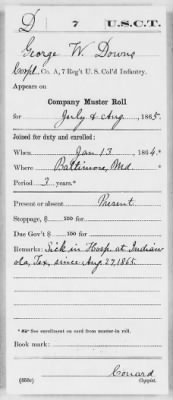 D 7 U.S.C.T.
George W Downs
Corpl, Co. A, 7 Reg't U. S. Col'd Infantry.
Appears on
Company Muster Roll
for July & Aug, 1865.
Joined for duty and enrolled:
When Jan 13, 1864.*
Where Baltimore, Md
Period 3 years.*
Present or absent Present
Stoppage, $ 100 for
Due Gov't $ 100 for
Remarks: Sick in Hosp. at Indian
ola, Tex, since Aug 27, 1865.
* See enrollment on card from muster-in roll.
Book mark:
Conard
(858c) Copyist.